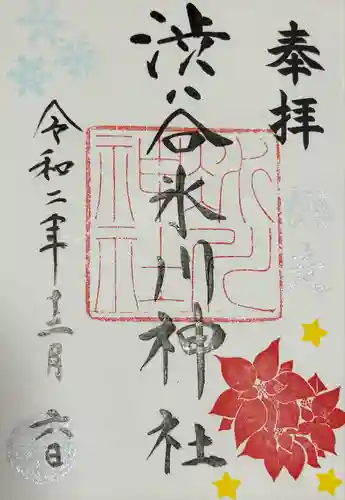 奉拝
渋谷氷川神社
令和二年十二月六日